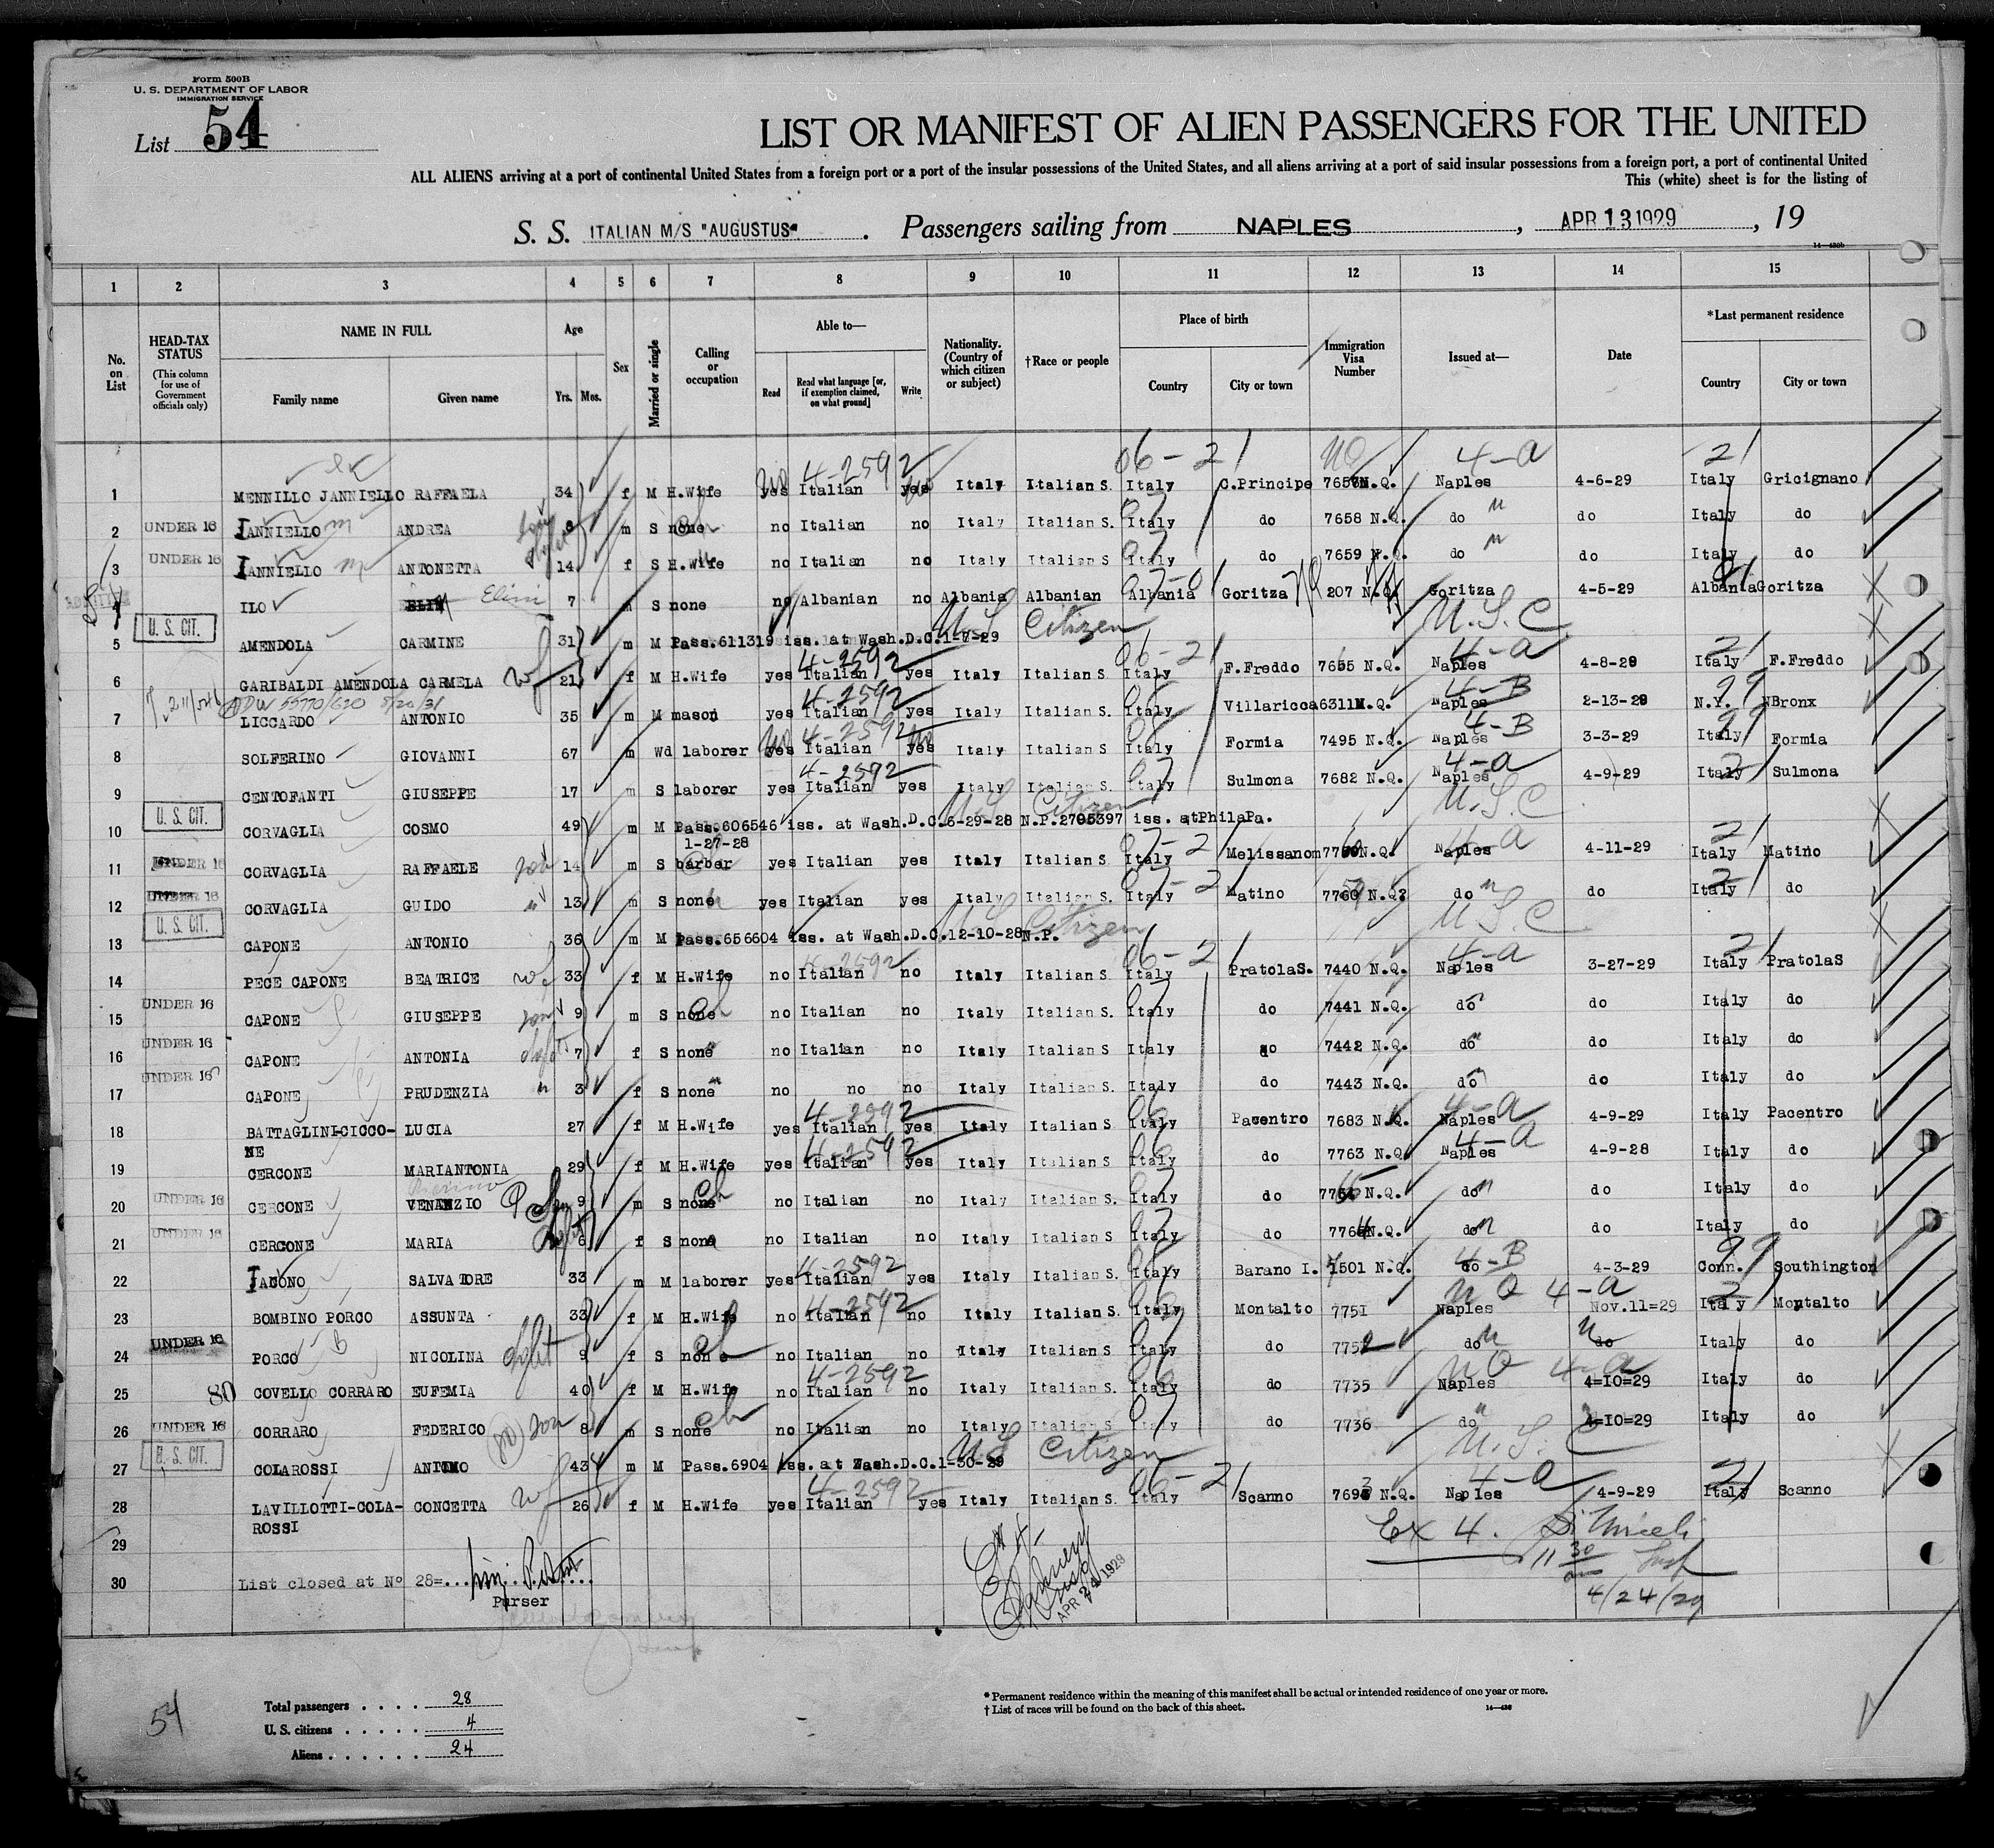 Form 500B
U. S. DEPARTMENT OF LABOR
IMMIGRATION SERVICE
List 54
LIST OR MANIFEST OF ALIEN PASSENGERS FOR THE UNITED
ALL ALIENS arriving at a port of continental United States from a foreign port or a port of the insular possessions of the United States, and all aliens arriving at a port of said insular possessions from a foreign port, a port of continental United
This (white) sheet is for the listing of
S. S. ITALIAN M/S "AUGUSTUS" . Passengers sailing from NAPLES , APR 13 1929 , 19
14—430b
1 2 3 4 5 6 7 8 9 10 11 12 13 14 15
No. on List
HEAD-TAX STATUS
(This column for use of Government officials only)
NAME IN FULL
Family name Given name
Age
Yrs. Mos.
Sex
Married or single
Calling or occupation
Able to—
Read
Read what language [or, if exemption claimed, on what ground]
Write
Nationality. (Country of which citizen or subject)
†Race or people
Place of birth
Country City or town
Immigration Visa Number
Issued at—
Date
*Last permanent residence
Country City or town
06-21 NQ 4-a 21
4-2592
1 MENNILLO JANNIELLO RAFFAELA 34 f M H.Wife yes Italian yes Italy Italian S. Italy C.Principe N.Q. Naples 4-6-29 Italy Gricignano
2 UNDER 16 IANNIELLO ANDREA m S none no Italian no Italy Italian S. Italy do 7658 N.Q. do do Italy do
3 UNDER 16 IANNIELLO ANTONETTA 14 f S H.Wife no Italian no Italy Italian S Italy do 7659 N.Q. do do Italy do
4 ILO Elini 7 S none no Albanian no Albania Albanian Albania Goritza 207 N.Q. Goritza 4-5-29 Albania Goritza
U. S. CIT. U.S. Citizen U.S.C
5 AMENDOLA CARMINE 31 m M Pass.611319 iss. at Wash.D.C.1-7-29
4-2592 06-21 4-a 21
6 GARIBALDI AMENDOLA CARMELA wf 21 f M H.Wife yes Italian yes Italy Italian S. Italy F.Freddo 7655 N.Q. Naples 4-8-29 Italy F.Freddo
4-2592 4-B 99
7 LICCARDO ANTONIO 35 m M mason yes Italian yes Italy Italian S. Italy Villaricca 6311 N.Q. Naples 2-13-29 N.Y. NBronx
4-2592 4-B 99
8 SOLFERINO GIOVANNI 67 m Wd laborer yes Italian yes Italy Italian S. Italy Formia 7495 N.Q. Naples 3-3-29 Italy Formia
4-2592 4-a
9 CENTOFANTI GIUSEPPE 17 m S laborer yes Italian yes Italy Italian S. Italy Sulmona 7682 N.Q. Naples 4-9-29 Italy Sulmona
U. S. CIT. U.S Citizen U.S.C
10 CORVAGLIA COSMO 49 m M Pass.606546 iss. at Wash.D.C.6-29-28 N.P.2705397 iss. atPhilaPa.
1-27-28
11 UNDER 16 CORVAGLIA RAFFAELE son 14 m S barber yes Italian yes Italy Italian S Italy Melissanom N.Q. Naples 4-11-29 Italy Matino
12 UNDER 16 CORVAGLIA GUIDO 13 m S none yes Italian yes Italy Italian S. Italy Matino N.Q. do do Italy do
U. S. CIT. U.S Citizen U.S.C
13 CAPONE ANTONIO 36 m M Pass.656604 iss. at Wash.D.C.12-10-28 N.P.
4-2592 06-21 4-a 21
14 PECE CAPONE BEATRICE wf 33 f M H.Wife no Italian no Italy Italian S. Italy PratolaS. 7440 N.Q. Naples 3-27-29 Italy PratolaS
15 UNDER 16 CAPONE GIUSEPPE son 9 m S none no Italian no Italy Italian S. Italy do 7441 N.Q. do do Italy do
16 UNDER 16 CAPONE ANTONIA 7 f S none no Italian no Italy Italian S Italy do 7442 N.Q. do do Italy do
17 UNDER 16 CAPONE PRUDENZIA 3 f S none no no no Italy Italian S. Italy do 7443 N.Q. do do Italy do
4-2592 4-a
18 BATTAGLINI-CICCO- LUCIA 27 f M H.Wife yes Italian yes Italy Italian S. Italy Pacentro 7683 N.Q. Naples 4-9-29 Italy Pacentro
NE
4-2592 4-a
19 CERCONE MARIANTONIA 29 f M H.Wife yes Italian yes Italy Italian S Italy do 7763 N.Q. Naples 4-9-28 Italy do
20 UNDER 16 CERCONE VENANZIO 9 m S none no Italian no Italy Italian S. Italy do N.Q. do do Italy do
21 UNDER 16 CERCONE MARIA 6 f S none no Italian no Italy Italian S Italy do 7764 N.Q. do do Italy do
4-2592 4-B 99
22 IACONO SALVATORE 33 m M laborer yes Italian yes Italy Italian S. Italy Barano I. 7501 N.Q. do 4-3-29 Conn. Southington
4-2592 NQ 4-a 2
23 BOMBINO PORCO ASSUNTA 33 f M H.Wife no Italian no Italy Italian S. Italy Montalto 7751 Naples Nov.11=29 Italy Montalto
24 UNDER 16 PORCO NICOLINA 9 f S none no Italian no Italy Italian S. Italy do 7752 do do Italy do
4-2592 NQ 4-a
25 80 COVELLO CORRARO EUFEMIA 40 f M H.Wife no Italian no Italy Italian S. Italy do 7735 Naples 4=10=29 Italy do
26 UNDER 16 CORRARO FEDERICO son 8 m S none no Italian no Italy Italian S. Italy do 7736 do 4=10=29 Italy do
U. S. CIT. U.S Citizen U.S.C
27 COLAROSSI 43 m M Pass.6904 iss. at Wash.D.C.1-30-29
4-2592 06-21 4-a 21
28 LAVILLOTTI-COLA- CONCETTA wf 26 f M H.Wife yes Italian yes Italy Italian S. Italy Scanno 7693 N.Q. Naples 4-9-29 Italy Scanno
ROSSI
Ex 4.
29
11 30 am Insp
30 List closed at No 28=
Purser
APR 24 1929
4/24/29
54
Total passengers . . . . . 28
U. S. citizens . . . . . 4
Aliens . . . . . . 24
* Permanent residence within the meaning of this manifest shall be actual or intended residence of one year or more.
† List of races will be found on the back of this sheet.